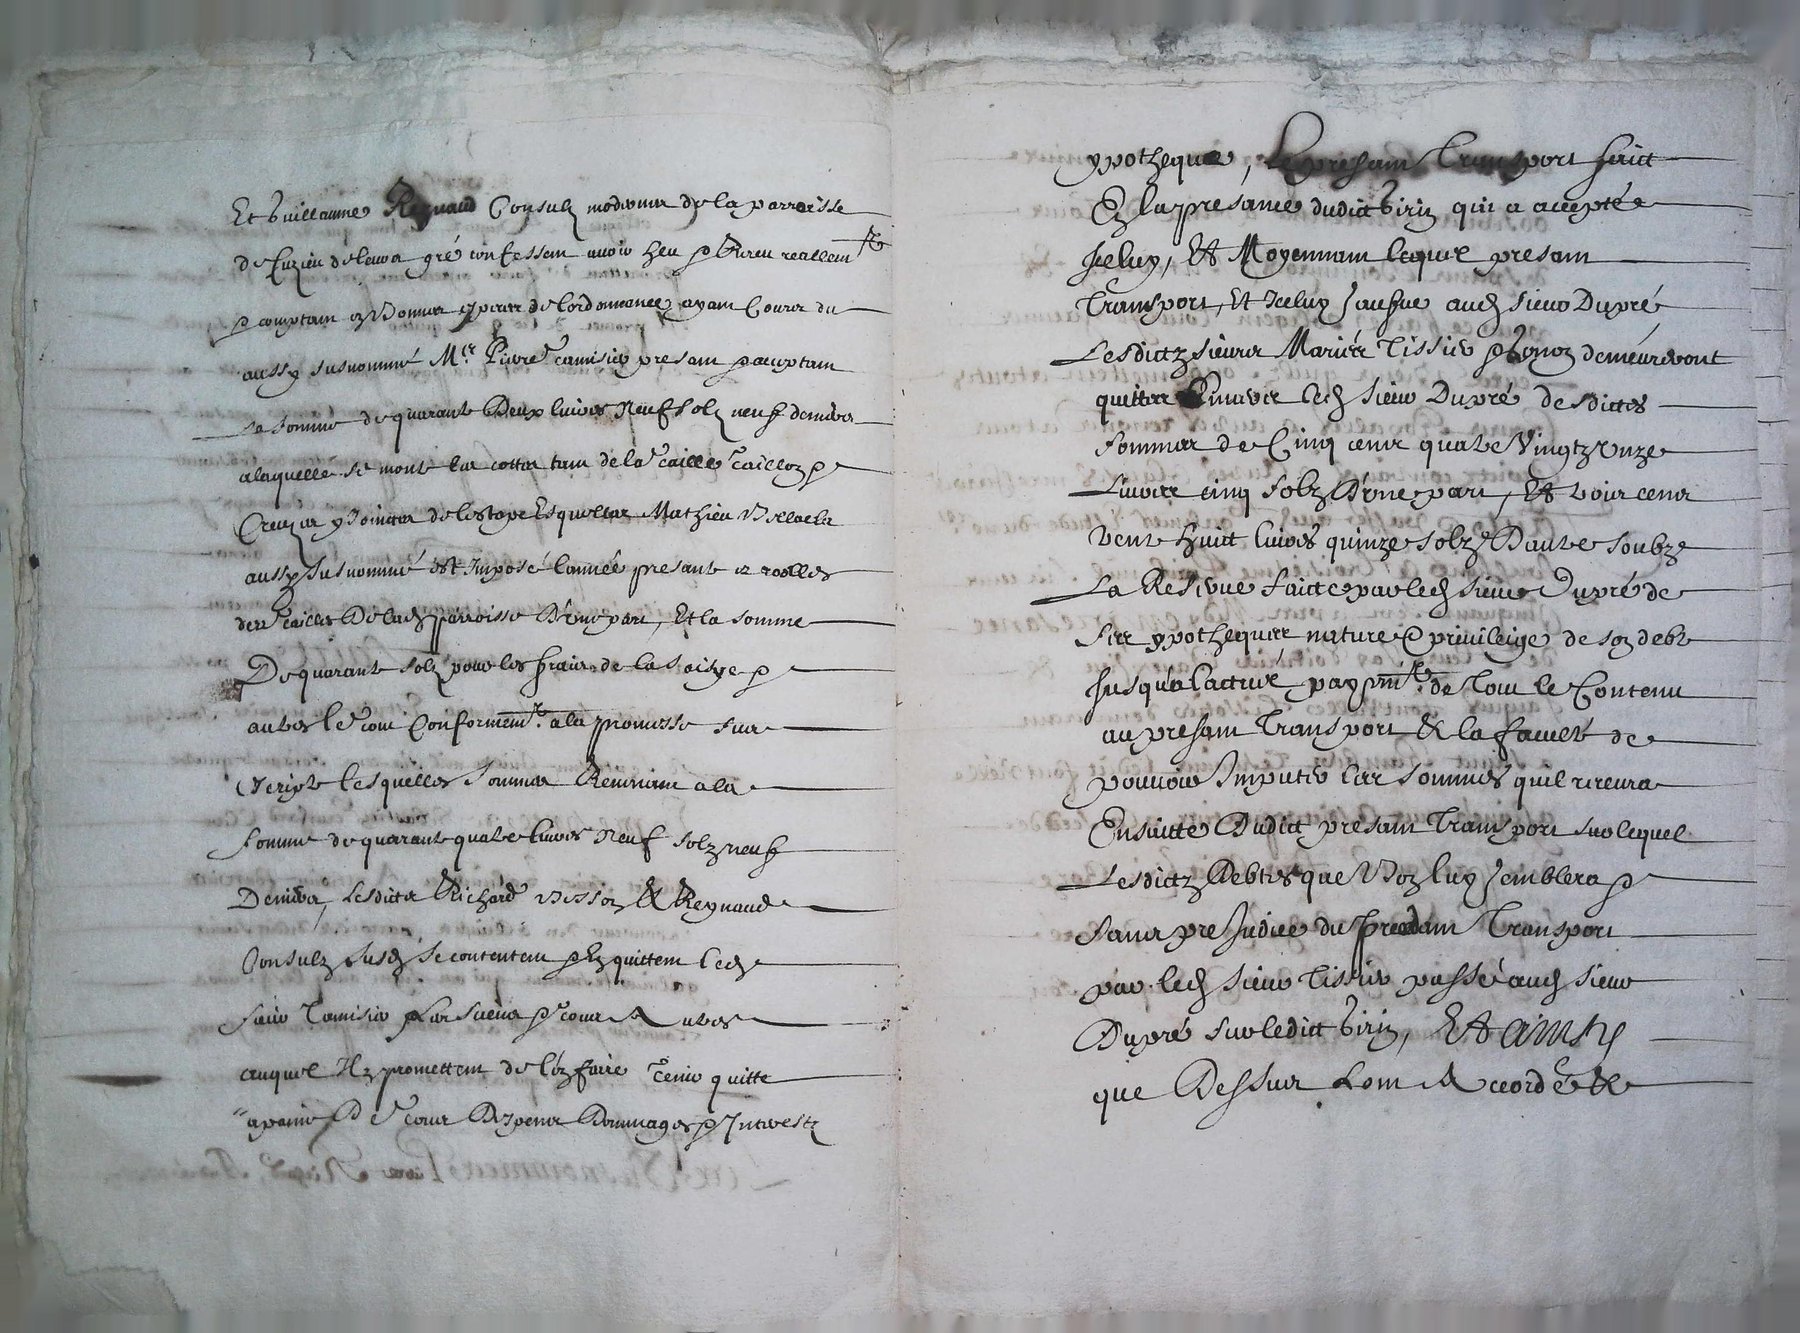 Et Guillaume Reynaud Consulz modernes de la parroisse
de luzieu de leurs gré confessent avoir heu & Receu reallemt
& comptant en bonnes espices de lordonnance ayant Cours du
aussy susnommé Mre Pierre tamisier present & acceptant
La somme de quarante Deux livres Neuf solz neuf deniers
a laquelle se monte les cottes tant de la taille taillon &
Creues y Jointes de lestape Esquelles Mathieu
aussy susnommé est Imposé lannée presante ez roolles
des tailles De lad parroisse D'une part, Et la somme
De quarante solz pour les frais de la saisye &
autres le tout Conformemt a la promesse sur
escripte lesquelles sommes Revenant a la
somme de quarante quatre livres Neuf solz neuf
Deniers, Lesdicts Richard & Reynaud
Consulz susd se contentent & En quittent led
sieur Tamisier Les siens & tous Autres
auquel Ilz promettent de len faire tenir quitte
a paine De tous Despens Dommages & Interestz
ypotheques, Le present Transport faict
En la presance dudict Girin qui a accepté
Iceluy, Et Moyennant lequel present
Transport, Et Iceluy sauf aud sieur Dupré
Lesdictz sieurs Tissier & demeureront
quittes Envers led sieur Dupré desdictes
sommes de Cinq cens quatre Vingtz Unze
Livres cinq solz D'une part, Et trois cens
vente huict livres quinze solz D'autre soubz
La Reserve faicte par led sieur Dupré de
ses ypotheques nature & privileige de son debt
Jusqu'a lactuel payemt de tout le Contenu
au present Transport & la faculté de
pouvoir Imputer les sommes quil recevra
Ensuitte Dudict present Transport sur lequel
Lesdictz Debtes que Bon luy semblera &
sans prejudice du present Transport
par led sieur Tissier passé aud sieur
Dupré sur ledict Girin, Et ainsy
que Dessus Lont Accordé &